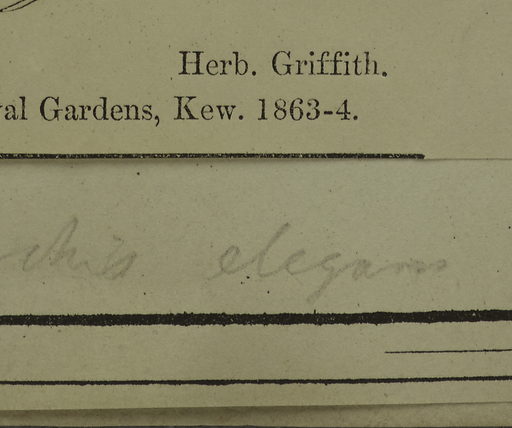 Herb. Griffith.
al Gardens, Kew. 1863-4.
elegans